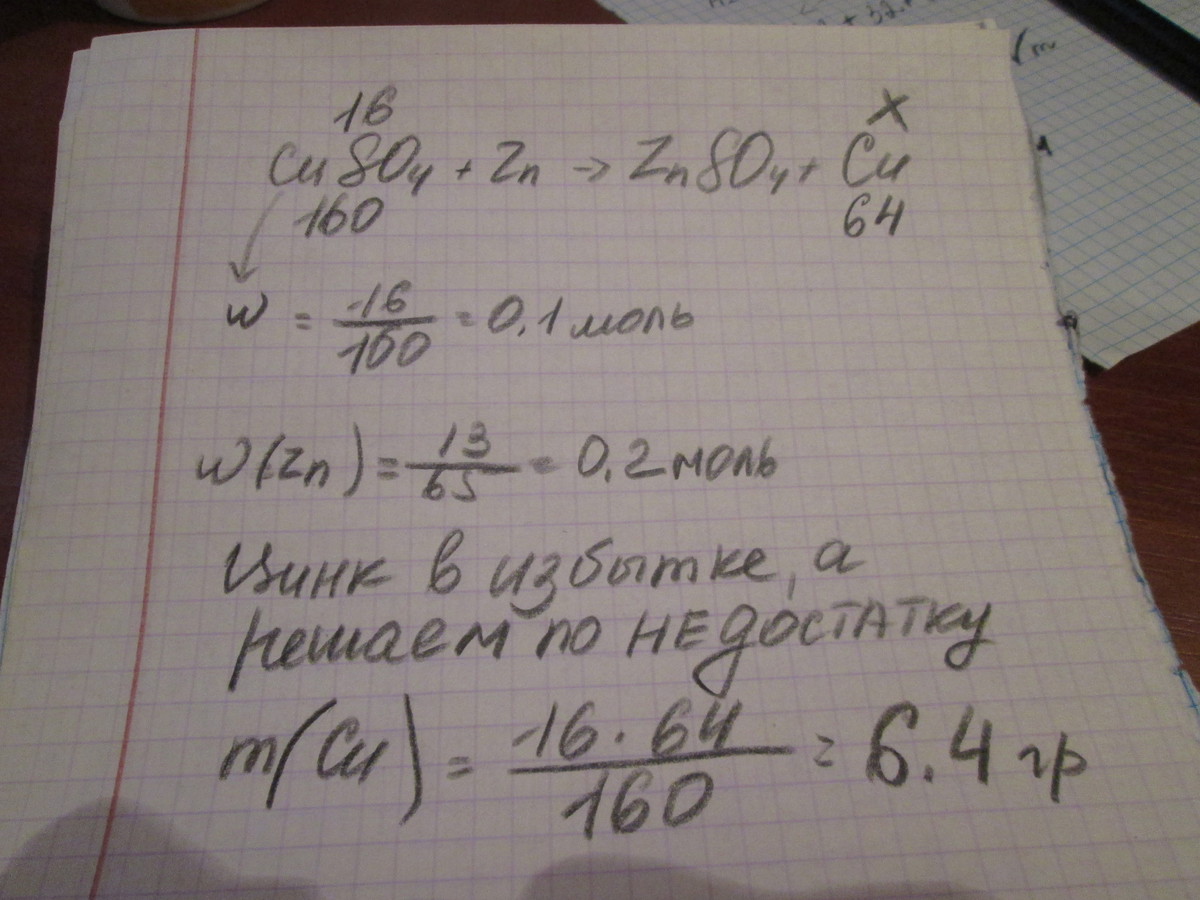 16 X
CuSO4 + Zn → ZnSO4 + Cu
160 64
w = 16/160 = 0,1 моль
w(Zn) = 13/65 = 0,2 моль
Цинк в избытке, а
решаем по НЕДОСТАТКУ
m(Cu) = 16·64/160 = 6.4 гр